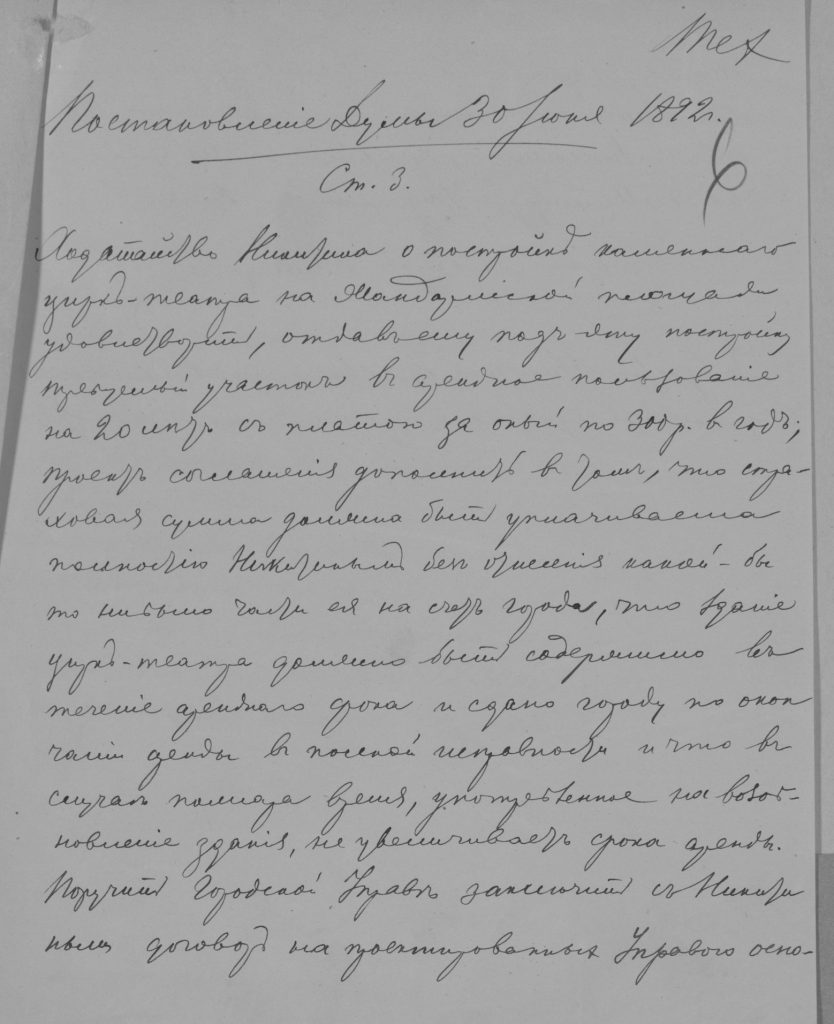 Тех
Постановленіе Думы 30 Іюня 1892 г.
6
Ст. 3.
Ходатайство Никитина о постройкѣ каменнаго
циркъ-театра на Жандармской площади
удовлетворить, отдавъ ему подъ эту постройку
требуемый участокъ въ арендное пользованіе
на 20 лѣтъ съ платою за оный по 300 р. въ годъ;
проектъ соглашенія дополнить въ томъ, что стра-
ховая сумма должна быть уплачиваема
полностію Никитинымъ безъ отнесенія какой-бы
то ни было части ея на счетъ города, что зданіе
циркъ-театра должно быть содержимо въ
теченіе аренднаго срока и сдано городу по окон
чаніи аренды въ полной исправности и что въ
случаѣ пожара время, употребленное на возоб-
новленіе зданія, не увеличиваетъ срока аренды.
Поручить Городской Управѣ заключить съ Никити
нымъ договоръ на проектированныхъ Управою осно-